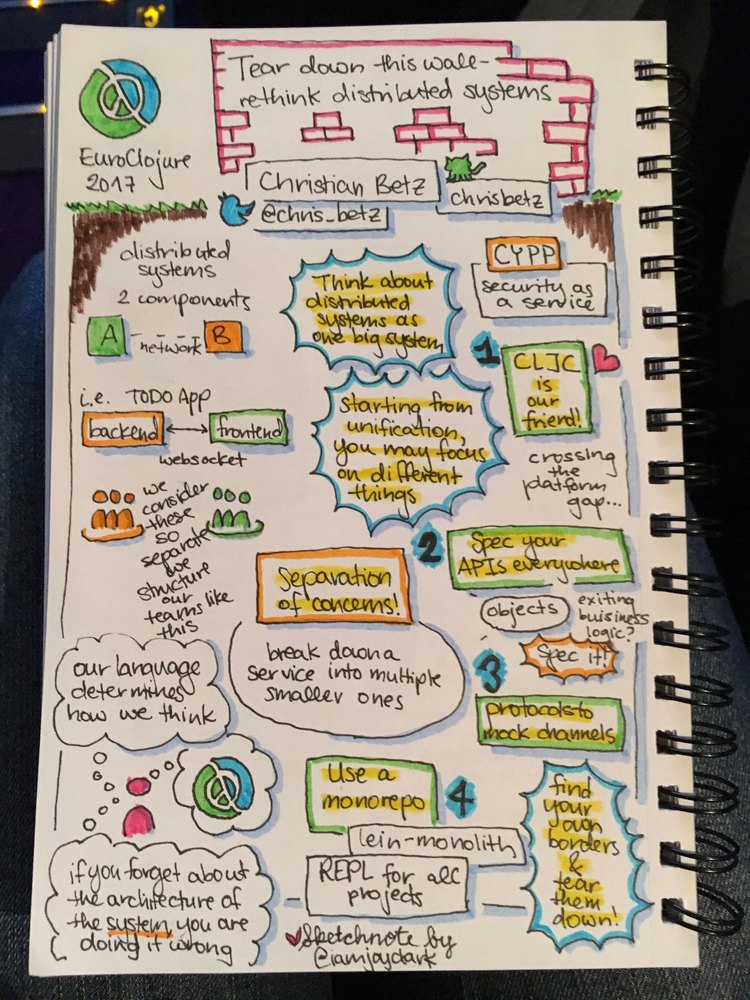 Tear down this wall-
rethink distributed systems
EuroClojure
2017
Christian Betz
@chris_betz
chrisbetz
distributed
systems
2 components
A
network
B
i.e. TODO App
backend
frontend
websocket
we
consider
these
so
separate
we
structure
our
teams like
this
our language
determines
how we think
if you forget about
the architecture of
the system you are
doing it wrong
Think about
distributed
systems as
one big system
starting from
unification,
you may focus
on different
things
Separation
of concerns!
break down a
service into multiple
smaller ones
CYPP
security as
a service
1
CLJC
is
our
friend!
crossing
the
platform
gap...
2
Spec your
APIs everywhere
objects
exiting
buisiness
logic?
Spec it!
3
protocols to
mock channels
Use a
monorepo
4
lein-monolith
REPL for all
projects
find
your
own
borders
&
tear
them
down!
Sketchnote by
@iamjoydark